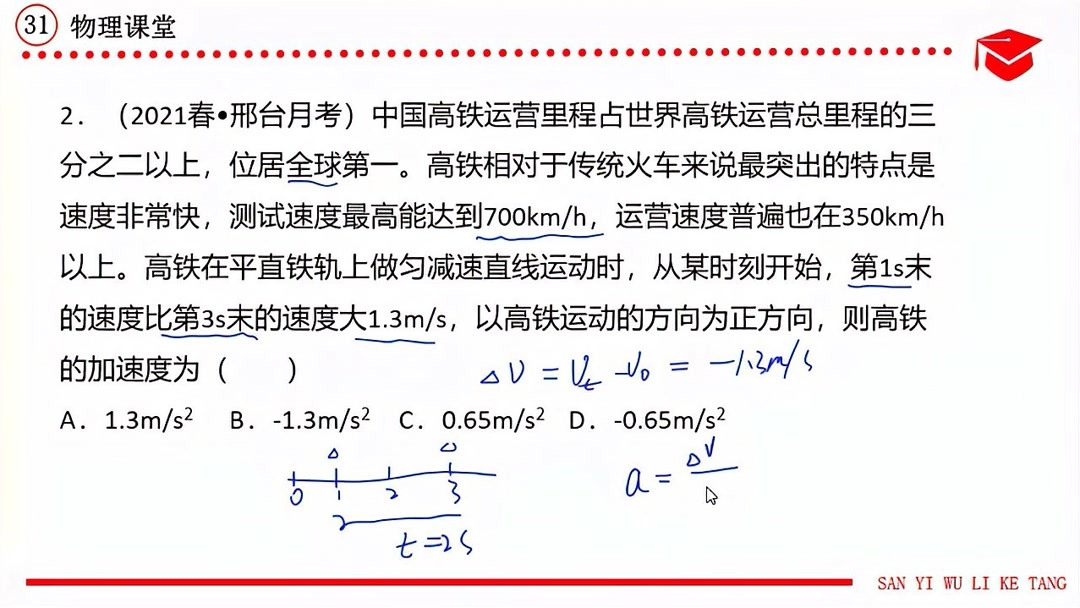 31 物理课堂
2. （2021春•邢台月考）中国高铁运营里程占世界高铁运营总里程的三
分之二以上，位居全球第一。高铁相对于传统火车来说最突出的特点是
速度非常快，测试速度最高能达到700km/h，运营速度普遍也在350km/h
以上。高铁在平直铁轨上做匀减速直线运动时，从某时刻开始，第1s末
的速度比第3s末的速度大1.3m/s，以高铁运动的方向为正方向，则高铁
的加速度为（　　）
ΔV = Vt - V0 = -1.3m/s
A. 1.3m/s² B. -1.3m/s² C. 0.65m/s² D. -0.65m/s²
0 1 2 3
t=2s
a = ΔV
SAN YI WU LI KE TANG